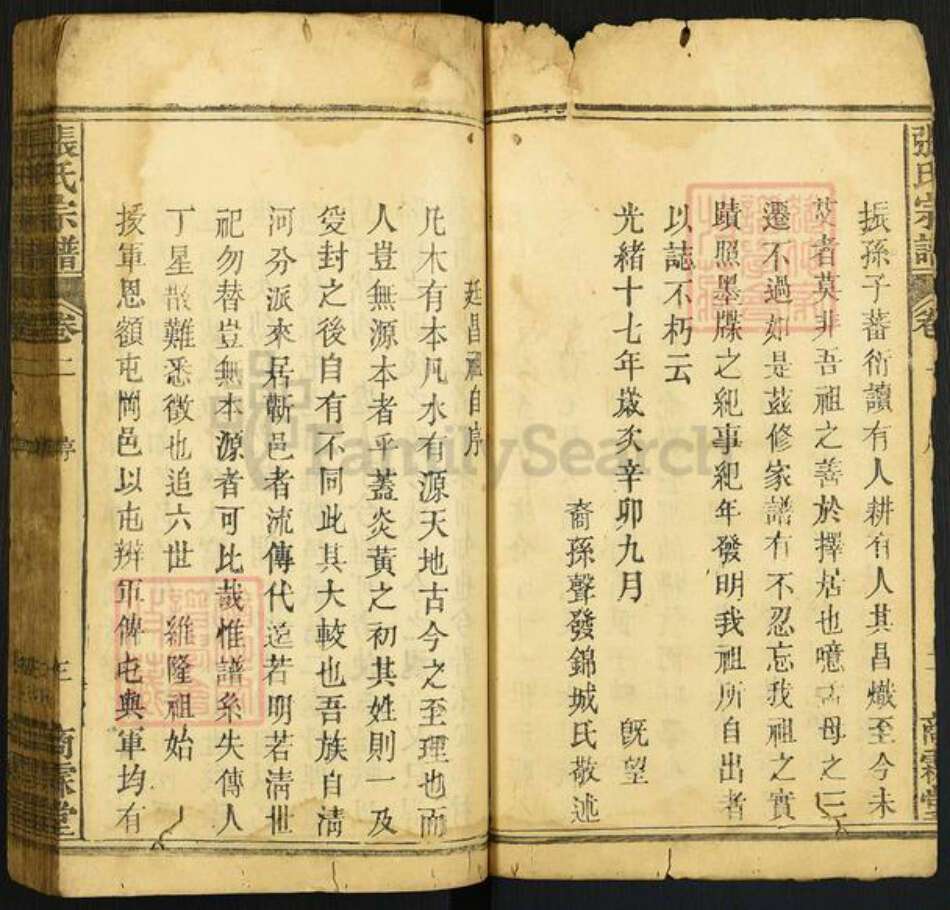 張氏宗譜 卷
商霖堂
振孫子蕃衍讀有人耕有人其昌熾至今未
艾者莫非吾祖之善於擇居也噫孟母之三
遷不過如是茲修家譜有不忍忘我祖之實
蹟照墨牒之紀事紀年發明我祖所自出者
以誌不朽云
光緒十七年歲次辛卯九月 既望
裔孫聲發錦城氏敬述
廷昌祖自序
凡木有本凡水有源天地古今之至理也而
人豈無源本者乎蓋炎黃之初其姓則一及
受封之後自有不同此其大較也吾族自清
河分派來居蘄邑者流傳代遠若明若清世
祀勿替豈無本源者可比哉惟譜系失傳人
丁星散難悉徵也追六世 維隆祖始
援軍恩額屯岡邑以屯辨軍俾屯與軍均有
張氏宗譜 卷二 序 三 商霖堂
FamilySearch